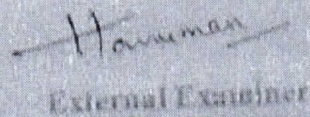 Hanuman
External Examiner